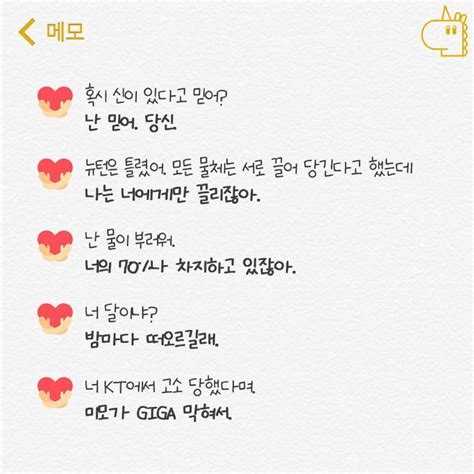 메모
혹시 신이 있다고 믿어?
난 믿어. 당신
뉴턴은 틀렸어. 모든 물체는 서로 끌어 당긴다고 했는데
나는 너에게만 끌리잖아.
난 물이 부러워.
너의 70%나 차지하고 있잖아.
너 달이냐?
밤마다 떠오르길래.
너 KT에서 고소 당했다며.
미모가 GIGA 막혀서.